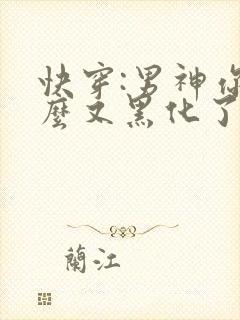 快穿:男神你
麼又黑化了
蘭江